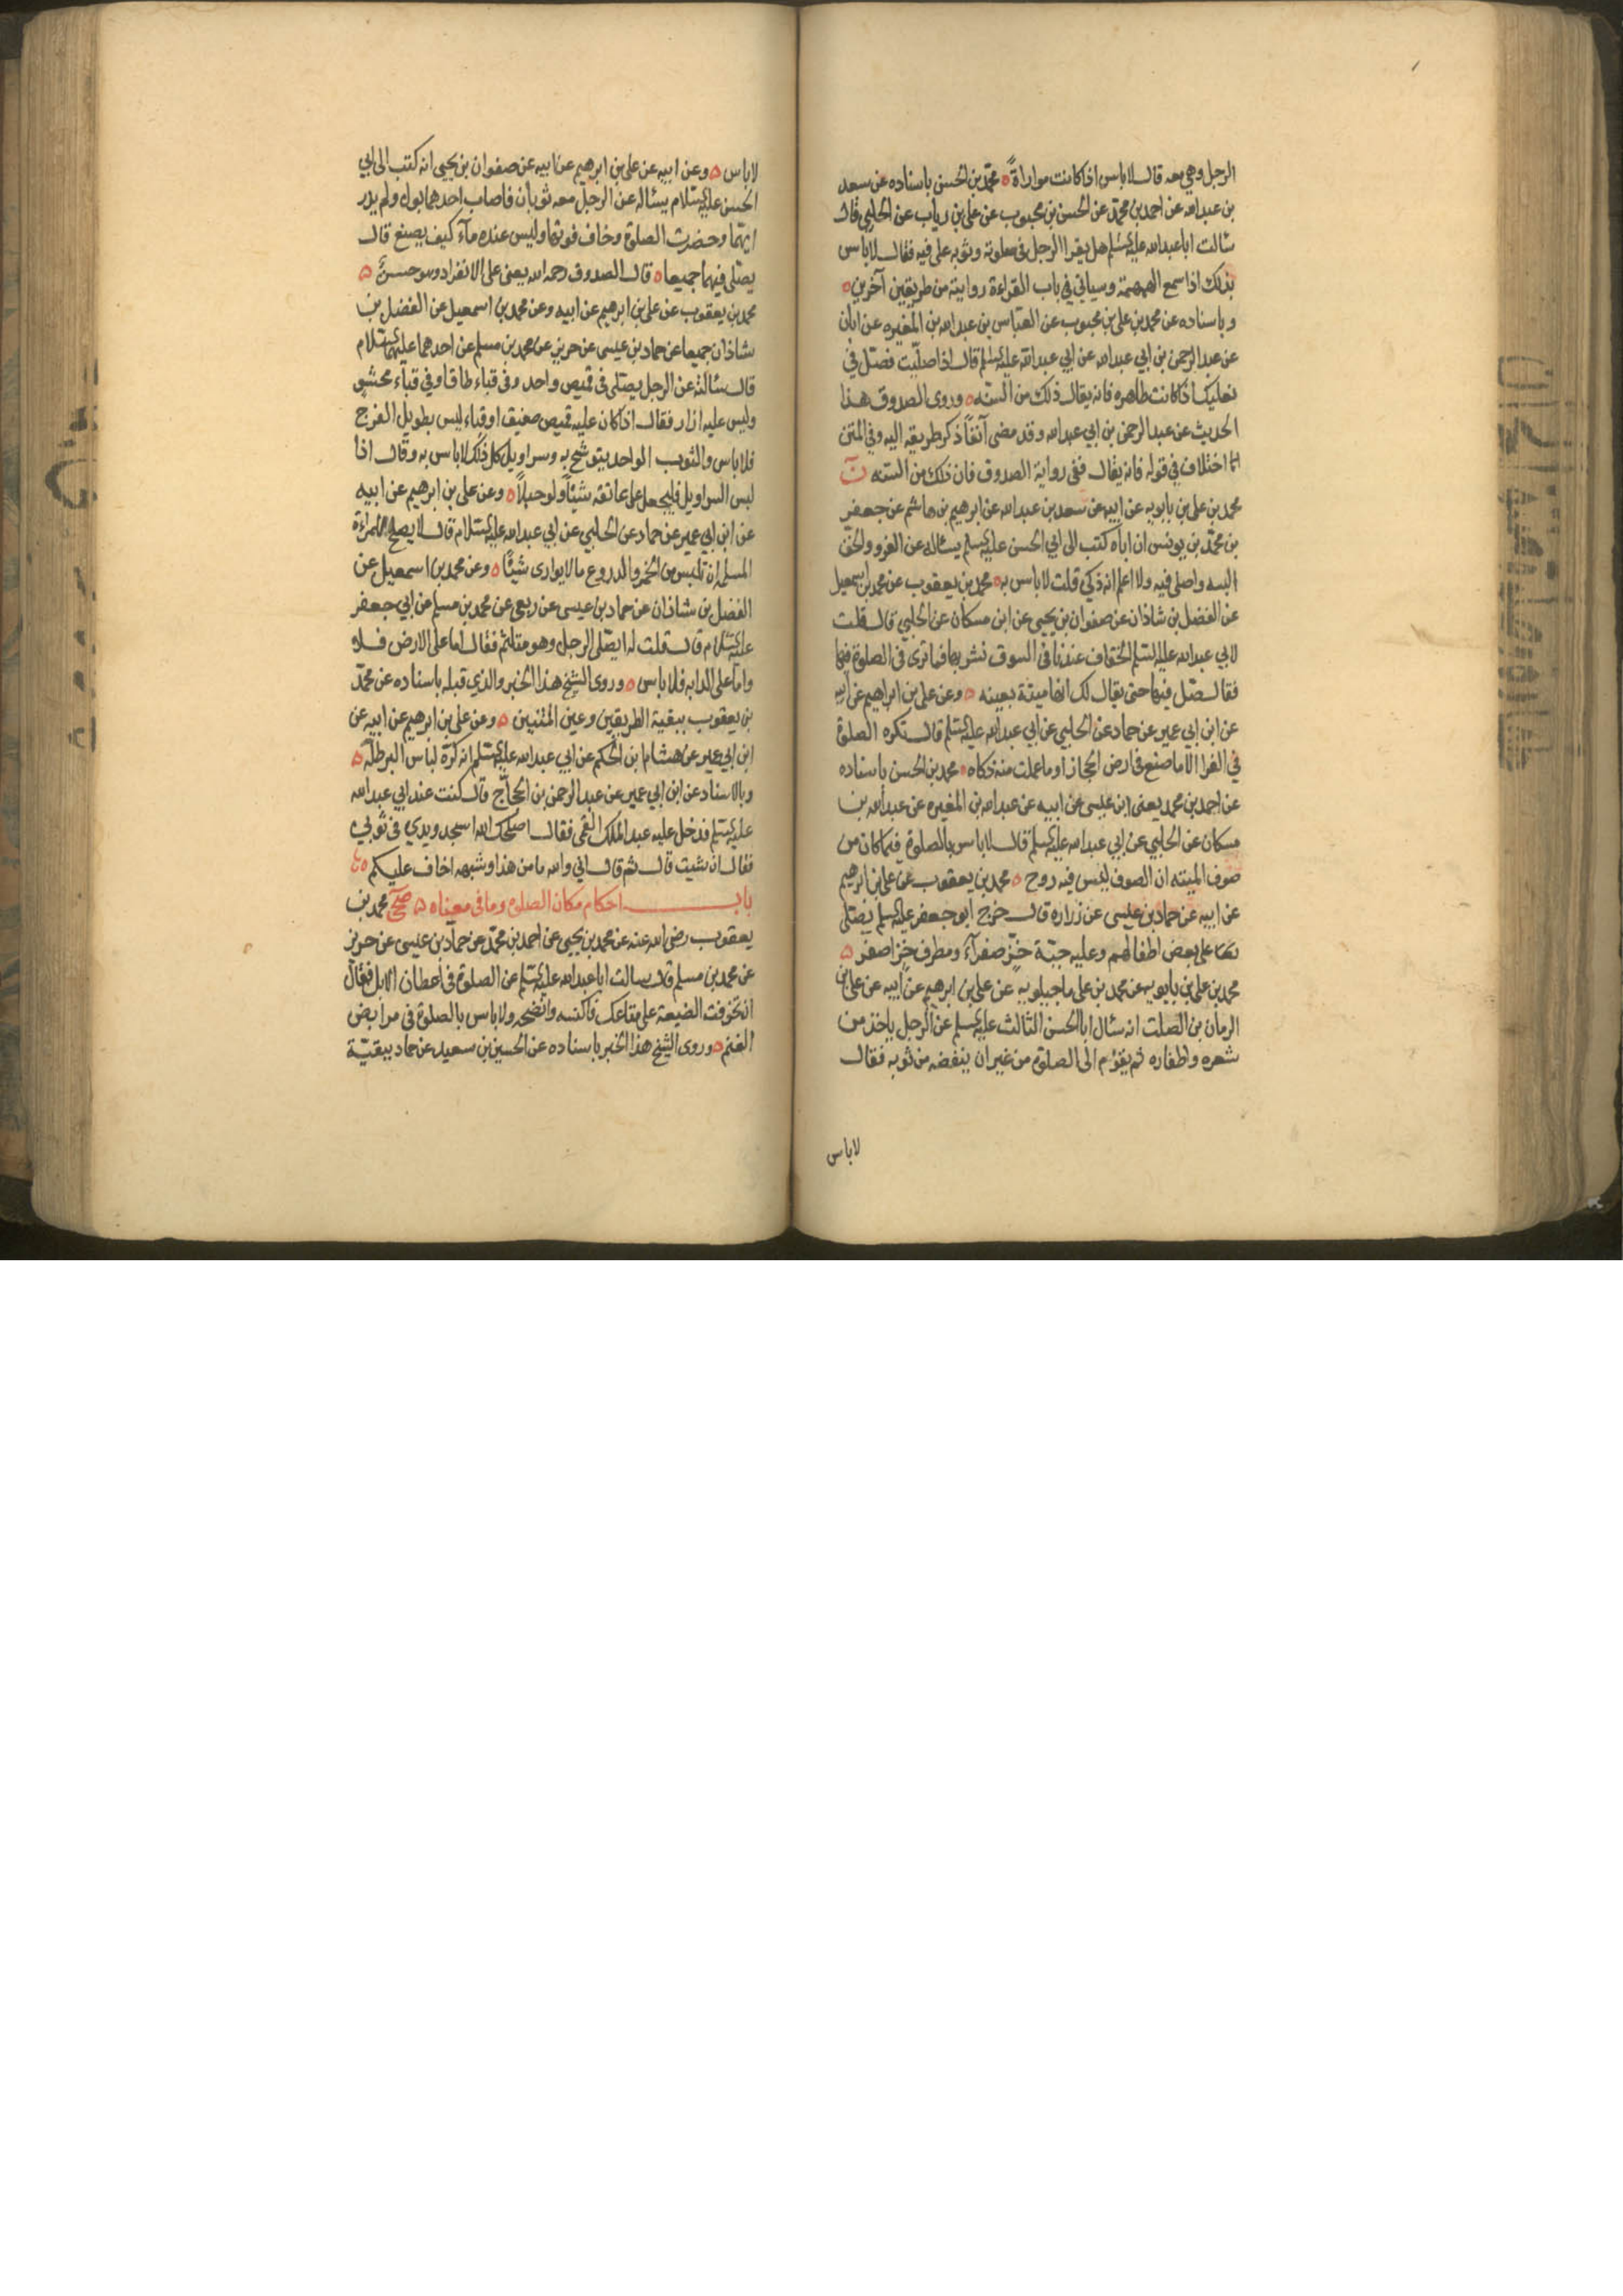 الرجل وهي معه قال لا باس اذا كانت مواراة ه محمد بن الحسن باسناده عن سعد
بن عبد الله عن احمد بن محمد عن الحسن بن محبوب عن علي بن رياب عن الحلبي قال
سالت ابا عبد الله عليه السلم هل يقرا الرجل في صلوته وثوبه على فيه فقال لا باس
بذلك اذا سمع الهمهمة وسياتي في باب القراءة روايته من طريقين آخرين ه
وباسناده عن محمد بن علي بن محبوب عن العباس بن عبد الله بن المغيره عن ابان
عن عبد الرحمن بن ابي عبد الله عن ابي عبد الله عليه السلم قال اذا صليت فصل في
نعليك اذا كانت طاهره فانه يقال ذلك من السنه ه وروى الصدوق هذا
الحديث عن عبد الرحمن بن ابي عبد الله وقد مضى آنفاً ذكر طريقه اليه وفي المتن
اختلاف في قوله فانه يقال ففى رواية الصدوق فان ذلك من السنه ن
محمد بن علي بن بابويه عن ابيه عن سعد بن عبد الله عن ابرهيم بن هاشم عن جعفر
بن محمد بن يونس ان اباه كتب الى ابي الحسن عليه السلم يسئاله عن الفرو والخف
البسه واصلي فيه ولا اعلم انه ذكي قلت لا باس به ه محمد بن يعقوب عن محمد بن اسمعيل
عن الفضل بن شاذان عن صفوان بن يحيى عن ابن مسكان عن الحلبي قال قلت
لابي عبد الله عليه السلم الخفاف عندنا في السوق نشريها فما ترى في الصلوة فيها
فقال صل فيها حتى يقال لك انها ميتة بعينه ه وعن علي بن ابراهيم عن ابيه
عن ابن ابي عمير عن حماد عن الحلبي عن ابي عبد الله عليه السلم قال تكره الصلوة
في الفرا الا ما صنع في ارض الحجاز او ما عملت منه ذكاه ه محمد بن الحسن باسناده
عن احمد بن محمد يعنى ابن عيسى عن ابيه عن عبد الله بن المغيره عن عبد الله بن
مسكان عن الحلبي عن ابي عبد الله عليه السلم قال لا باس بالصلوة فيما كان من
صوف الميته ان الصوف ليس فيه روح ه محمد بن يعقوب عن علي بن ابرهيم
عن ابيه عن حماد بن عيسى عن زراره قال خرج ابو جعفر عليه السلم يصلى
على بعض اطفالهم وعليه جبّة خزّ صفرآء ومطرف خز اصفر ه
محمد بن علي بن بابويه عن محمد بن علي ماجيلويه عن علي بن ابرهيم عن ابيه عن علي بن
الريان بن الصلت انه سئال ابا الحسن الثالث عليه السلم عن الرجل ياخذ من
شعره واظفاره ثم يقوم الى الصلوة من غير ان ينفضه من ثوبه فقال
لا باس
لا باس ه وعن ابيه عن علي بن ابرهيم عن ابيه عن صفوان بن يحيى انه كتب الى ابي
الحسن عليه السلام يسئاله عن الرجل معه ثوبان فاصاب احدهما بول ولم يدر
ايهما وحضرت الصلوة وخاف فوتها وليس عنده مآء كيف يصنع قال
يصلى فيهما جميعا ه قال الصدوق رحمه الله يعنى على الانفراد وهو حسن ه
محمد بن يعقوب عن علي بن ابرهيم عن ابيه وعن محمد بن اسمعيل عن الفضل بن
شاذان جميعا عن حماد بن عيسى عن حريز عن محمد بن مسلم عن احدهما عليهما السلام
قال سئالته عن الرجل يصلى في قميص واحد وفي قباء طاق او في قباء محشو
وليس عليه ازار فقال اذا كان عليه قميص صفيق او قباء ليس بطويل الفرج
فلا باس والثوب الواحد يتوشح به وسراويل كل ذلك لا باس به وقال اذا
لبس السراويل فليجعل على عاتقه شيئاً ولو حبلاً ه وعن علي بن ابرهيم عن ابيه
عن ابن ابي عمير عن حماد عن الحلبي عن ابي عبد الله عليه السلام قال لا يصلح للمراءة
المسلمه ان تلبس من الخمر والدروع ما لا يوارى شيئًا ه وعن محمد بن اسمعيل عن
الفضل بن شاذان عن حماد بن عيسى عن ربعى عن محمد بن مسلم عن ابي جعفر
عليه السلام قال قلت له ايصلى الرجل وهو متلثم فقال اما على الارض فلا
واما على الدابه فلا باس ه وروى الشيخ هذا الخبر والذي قبله باسناده عن محمد
بن يعقوب ببقية الطريقين وعين المتنين ه وعن علي بن ابرهيم عن ابيه عن
ابن ابي عمير عن هشام ابن الحكم عن ابي عبد الله عليه السلم انه كره لباس البرطلة ه
وبالاسناد عن ابن ابي عمير عن عبد الرحمن بن الحجاج قال كنت عند ابي عبد الله
عليه السلم فدخل عليه عبد الملك القمى فقال اصلحك الله اسجد ويدي في ثوبي
فقال ان شيت قال ثم قال اني والله ما من هذا وشبهه اخاف عليكم ه
باب احكام مكان الصلوة وما في معناه ه صحي محمد بن
يعقوب رضى الله عنه عن محمد بن يحيى عن احمد بن محمد عن حماد بن عيسى عن حريز
عن محمد بن مسلم قال سالت ابا عبد الله عليه السلم عن الصلوة في اعطان الابل فقال
ان تخوفت الضيعة على متاعك فاكنسه وانضحه ولا باس بالصلوة في مرابض
الغنم ه وروى الشيخ هذا الخبر باسناده عن الحسين بن سعيد عن حماد ببقيّة